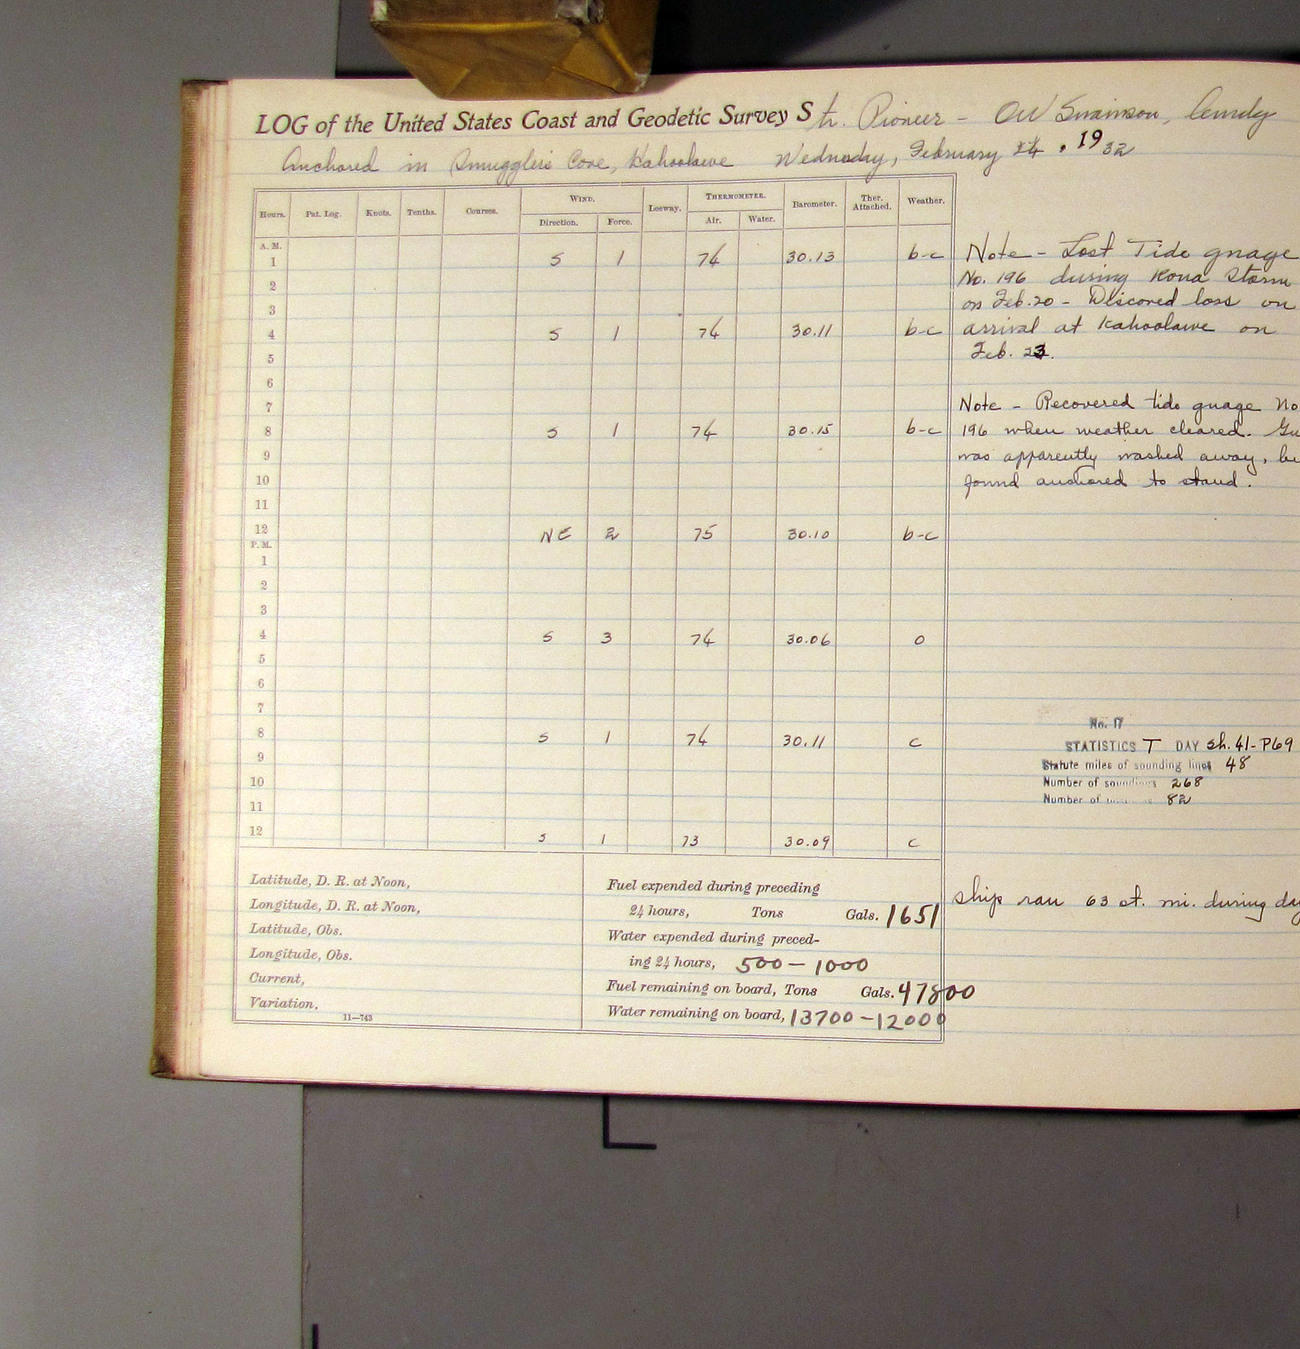 LOG of the United States Coast and Geodetic Survey Str. Pioneer - OW Swainson, Comdg
Anchored in Smugglers Cove, Kahoolawe Wednesday, February 24, 1932
Hours. Pat. Log. Knots. Tenths. Courses. WIND. Leeway. THERMOMETER. Barometer. Ther. Attached. Weather.
Direction. Force. Air. Water.
A. M.
1 S 1 74 30.13 b-c
2
3
4 S 1 74 30.11 b-c
5
6
7
8 S 1 74 30.15 b-c
9
10
11
12 NE 2 75 30.10 b-c
P. M.
1
2
3
4 S 3 74 30.06 O
5
6
7
8 S 1 74 30.11 C
9
10
11
12 S 1 73 30.09 C
Note - Lost Tide guage
No. 196 during Kona Storm
on Feb. 20 - Discored loss on
arrival at Kahoolawe on
Feb. 23.
Note - Recovered tide guage No
196 when weather cleared. Gu
was apparently washed away, bu
found anchored to stand.
No. 17
STATISTICS T DAY Sh. 41-P69
Statute miles of sounding lines 48
Number of soundings 268
Number of 82
Ship ran 63 st. mi. during day
Latitude, D. R. at Noon,
Longitude, D. R. at Noon,
Latitude, Obs.
Longitude, Obs.
Current,
Variation.
11—743
Fuel expended during preceding
24 hours, Tons Gals. 1651
Water expended during preced-
ing 24 hours, 500 - 1000
Fuel remaining on board, Tons Gals. 47800
Water remaining on board, 13700 - 12000